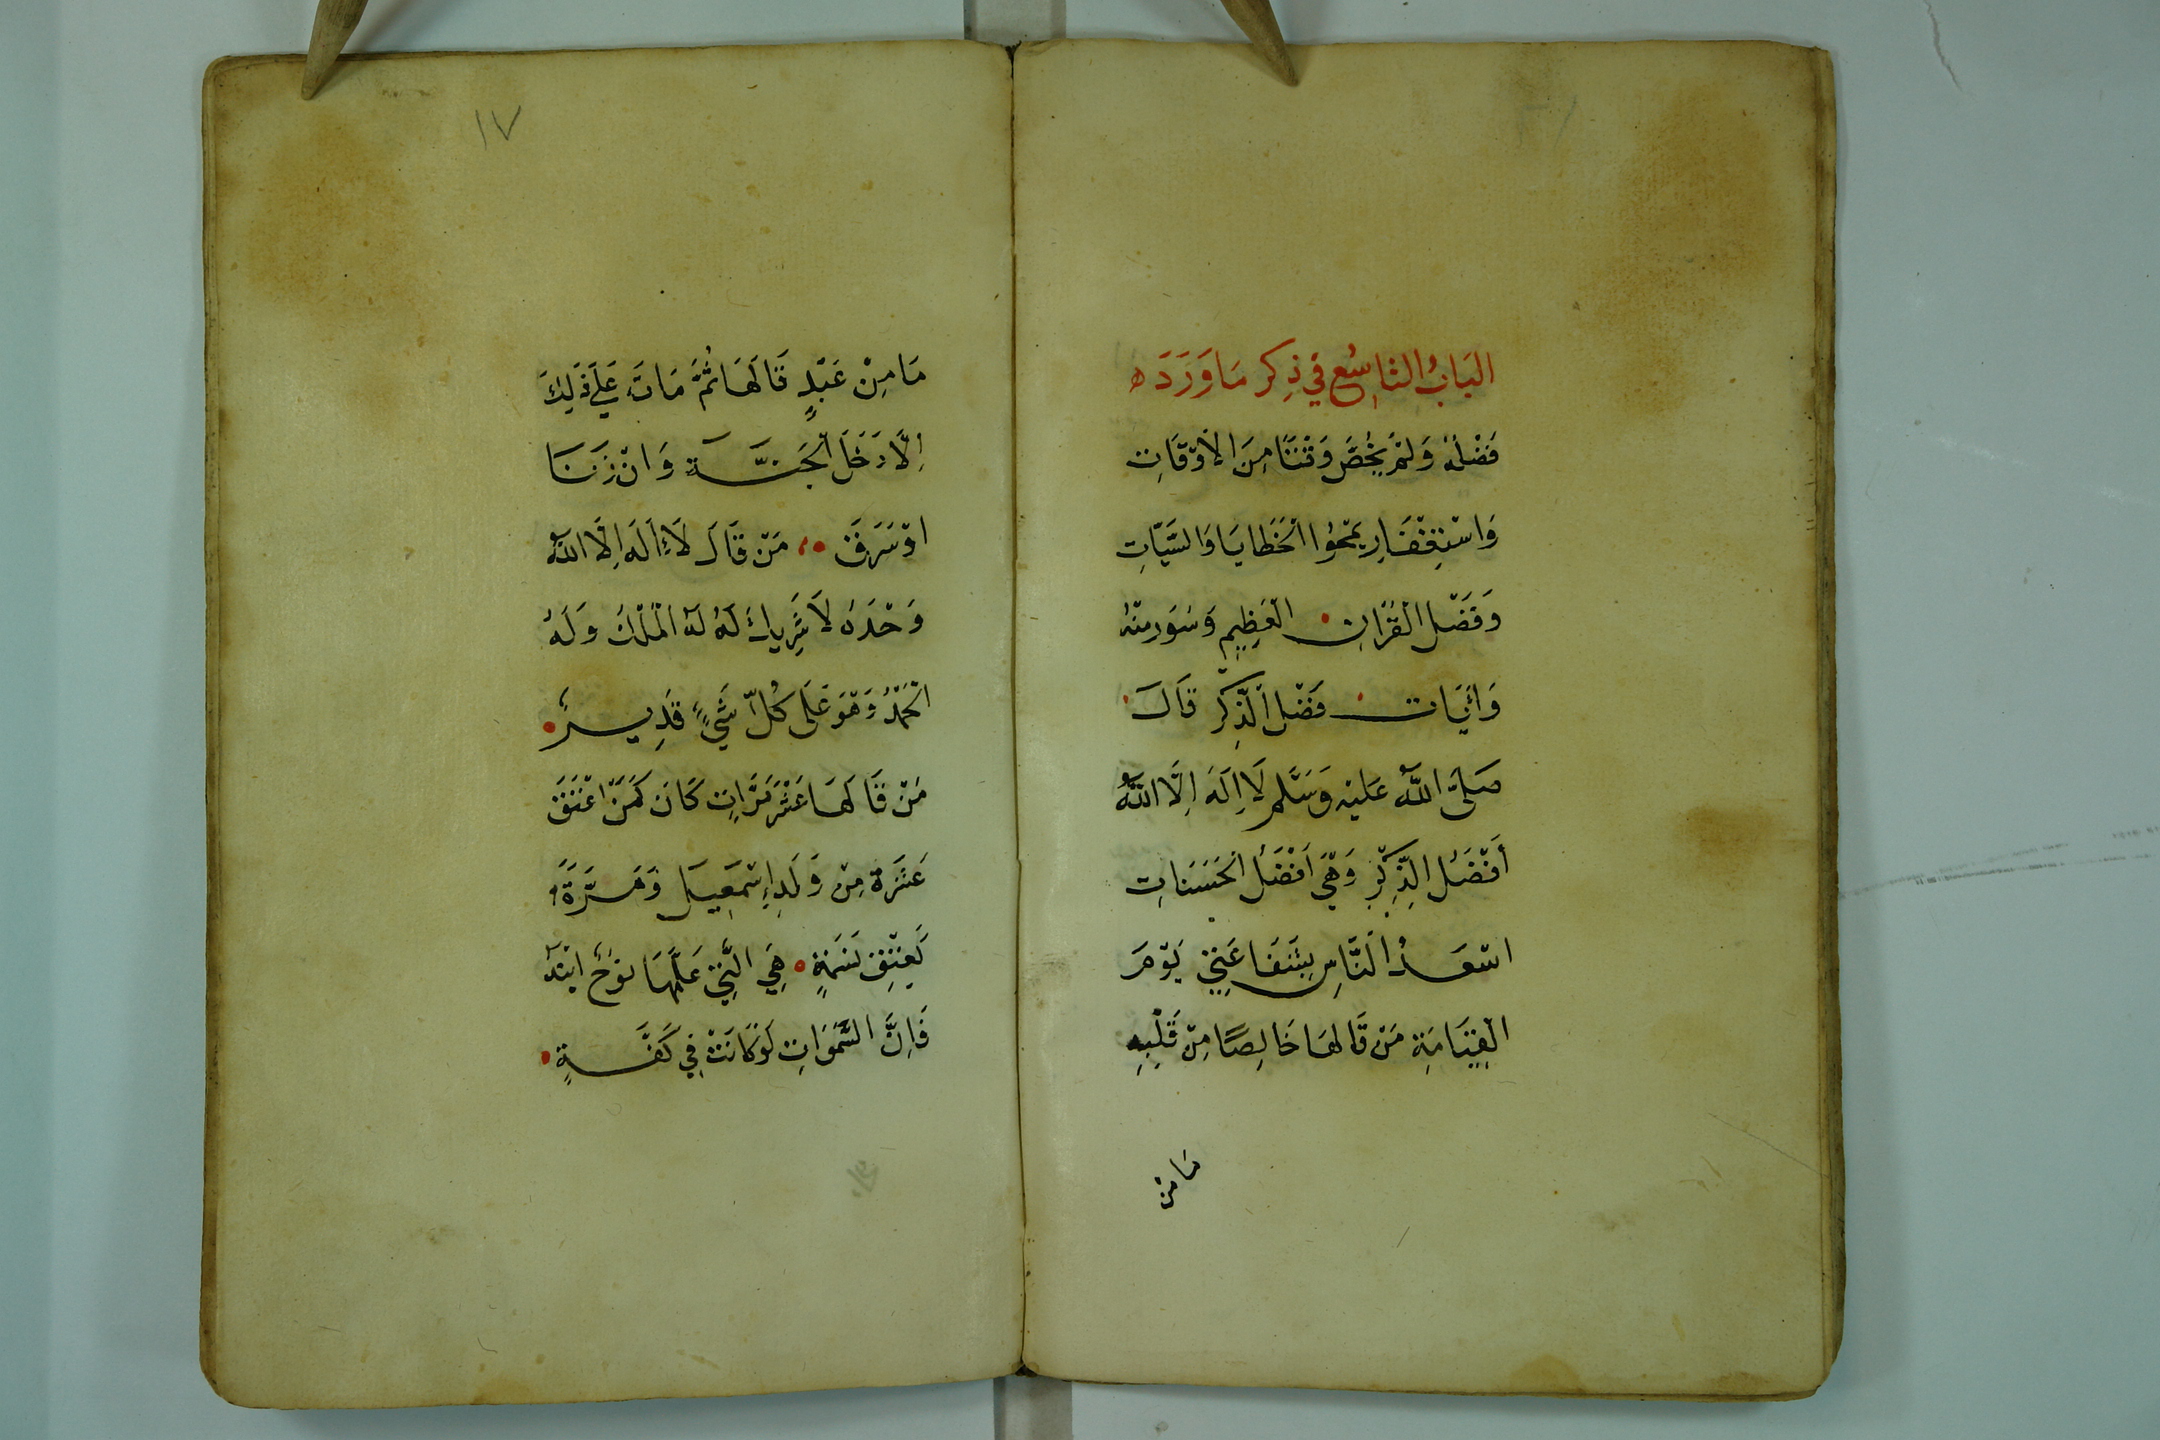 البَابُ التاسِعُ في ذِكر مَا وَرَدَ ه
فَضْلُهُ وَلَمْ يَخُصَّ وَقْتًا مِنَ الأَوْقَاتِ
وَاسْتِغْفَارِ يَمْحُوا الْخَطَايَا وَالسَّيّاتِ
وَفَضْلِ الْقُرْانِ العَظِيمِ وَسُوَر مِنْهُ
وَآيَات فَضْل الذِّكْر قَالَ
صَلَّى اللّٰهُ عَلَيْه وَسَلَّم لَا اِلَهَ اِلَّا اللّٰهُ
أَفْضَلُ الذِّكْرِ وَهِيَ اَفْضَلُ الْحَسَنَاتِ
اسْعَدُ النَّاسِ بِشَفَاعَتِي يَوْمَ
الْقِيَامَةِ مَنْ قَالهَا خَالِصًا مِنْ قَلْبِهِ
مَا مِنْ
١٧
مَا مِنْ عَبْدٍ قَالَهَا ثُمَّ مَاتَ عَلَى ذَلِكَ
اِلَّا دَخَلَ الْجَنَّةَ وَانْ زَنَا
اوْ سَرَقَ مَنْ قَالَ لَا اِلَهَ اِلَّا اللّٰهُ
وَحْدَهُ لَا شَرِيكَ لَهُ لَهُ الْمُلْكُ وَلَهُ
الْحَمْدُ وَهُوَ عَلَى كُلّ شَيْءٍ قَدِيرٌ
مَنْ قَالهَا عَشْرَ مَرَّاتٍ كَانَ كَمَنْ اعْتَقَ
عَشَرَةً مِنْ وَلَدِ اِسْمَعِيلَ وَمَرَّةً
كَعِتْقِ نَسَمَةٍ هِيَ الَّتِي عَلَّمَهَا نوُحٌ ابْنَهُ
فَاِنَّ السَّمَوَاتِ لَوْ كَانَتْ فِي كَفَّةٍ